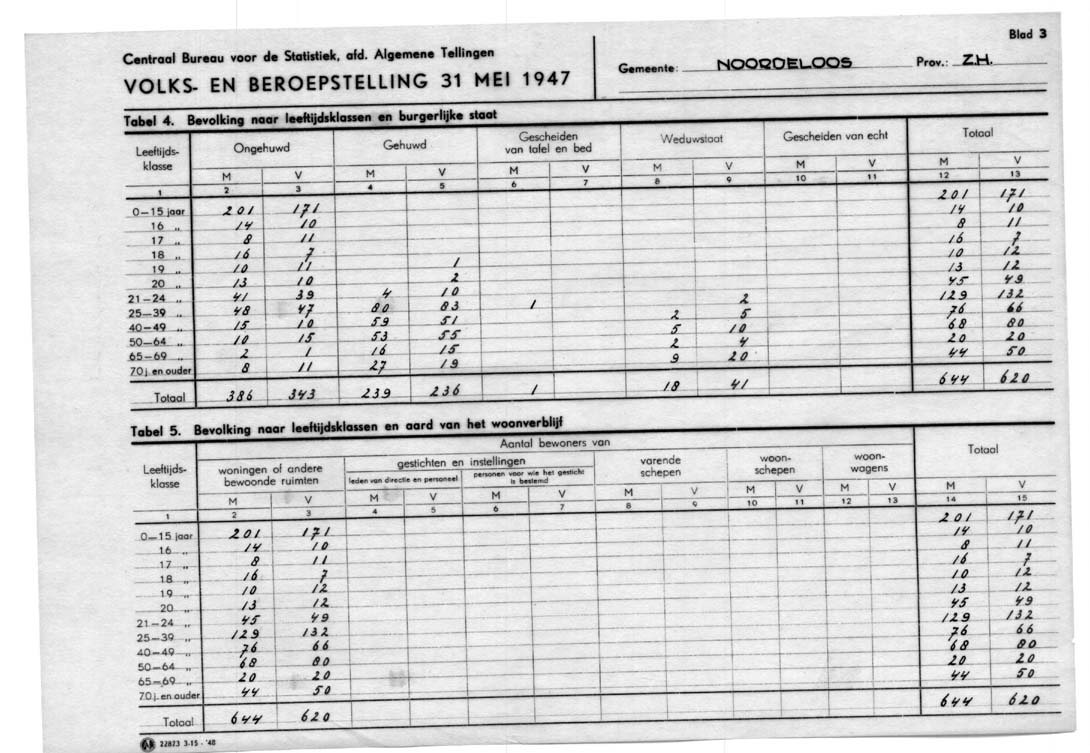 Blad 3
Centraal Bureau voor de Statistiek, afd. Algemene Tellingen
VOLKS- EN BEROEPSTELLING 31 MEI 1947
Gemeente: NOORDELOOS Prov.: Z.H.
Tabel 4. Bevolking naar leeftijdsklassen en burgerlijke staat
Leeftijds-klasse Ongehuwd Gehuwd Gescheiden van tafel en bed Weduwstaat Gescheiden van echt Totaal
M V M V M V M V M V M V
1 2 3 4 5 6 7 8 9 10 11 12 13
0—15 jaar 201 171 201 171
16 „ 14 10 14 10
17 „ 8 11 8 11
18 „ 16 7 16 7
19 „ 10 11 1 10 12
20 „ 13 10 2 13 12
21—24 „ 41 39 4 10 45 49
25—39 „ 48 47 80 83 1 2 129 132
40—49 „ 15 10 59 51 2 5 76 66
50—64 „ 10 15 53 55 5 10 68 80
65—69 „ 2 1 16 15 2 4 20 20
70 j. en ouder 8 11 27 19 9 20 44 50
Totaal 386 343 239 236 1 18 41 644 620
Tabel 5. Bevolking naar leeftijdsklassen en aard van het woonverblijf
Aantal bewoners van
Leeftijds-klasse woningen of andere bewoonde ruimten gestichten en instellingen varende schepen woon-schepen woon-wagens Totaal
leden van directie en personeel personen voor wie het gesticht is bestemd
M V M V M V M V M V M V M V
1 2 3 4 5 6 7 8 9 10 11 12 13 14 15
0—15 jaar 201 171 201 171
16 „ 14 10 14 10
17 „ 8 11 8 11
18 „ 16 7 16 7
19 „ 10 12 10 12
20 „ 13 12 13 12
21—24 „ 45 49 45 49
25—39 „ 129 132 129 132
40—49 „ 76 66 76 66
50—64 „ 68 80 68 80
65—69 „ 20 20 20 20
70 j. en ouder 44 50 44 50
Totaal 644 620 644 620
22873 3-15 - '48